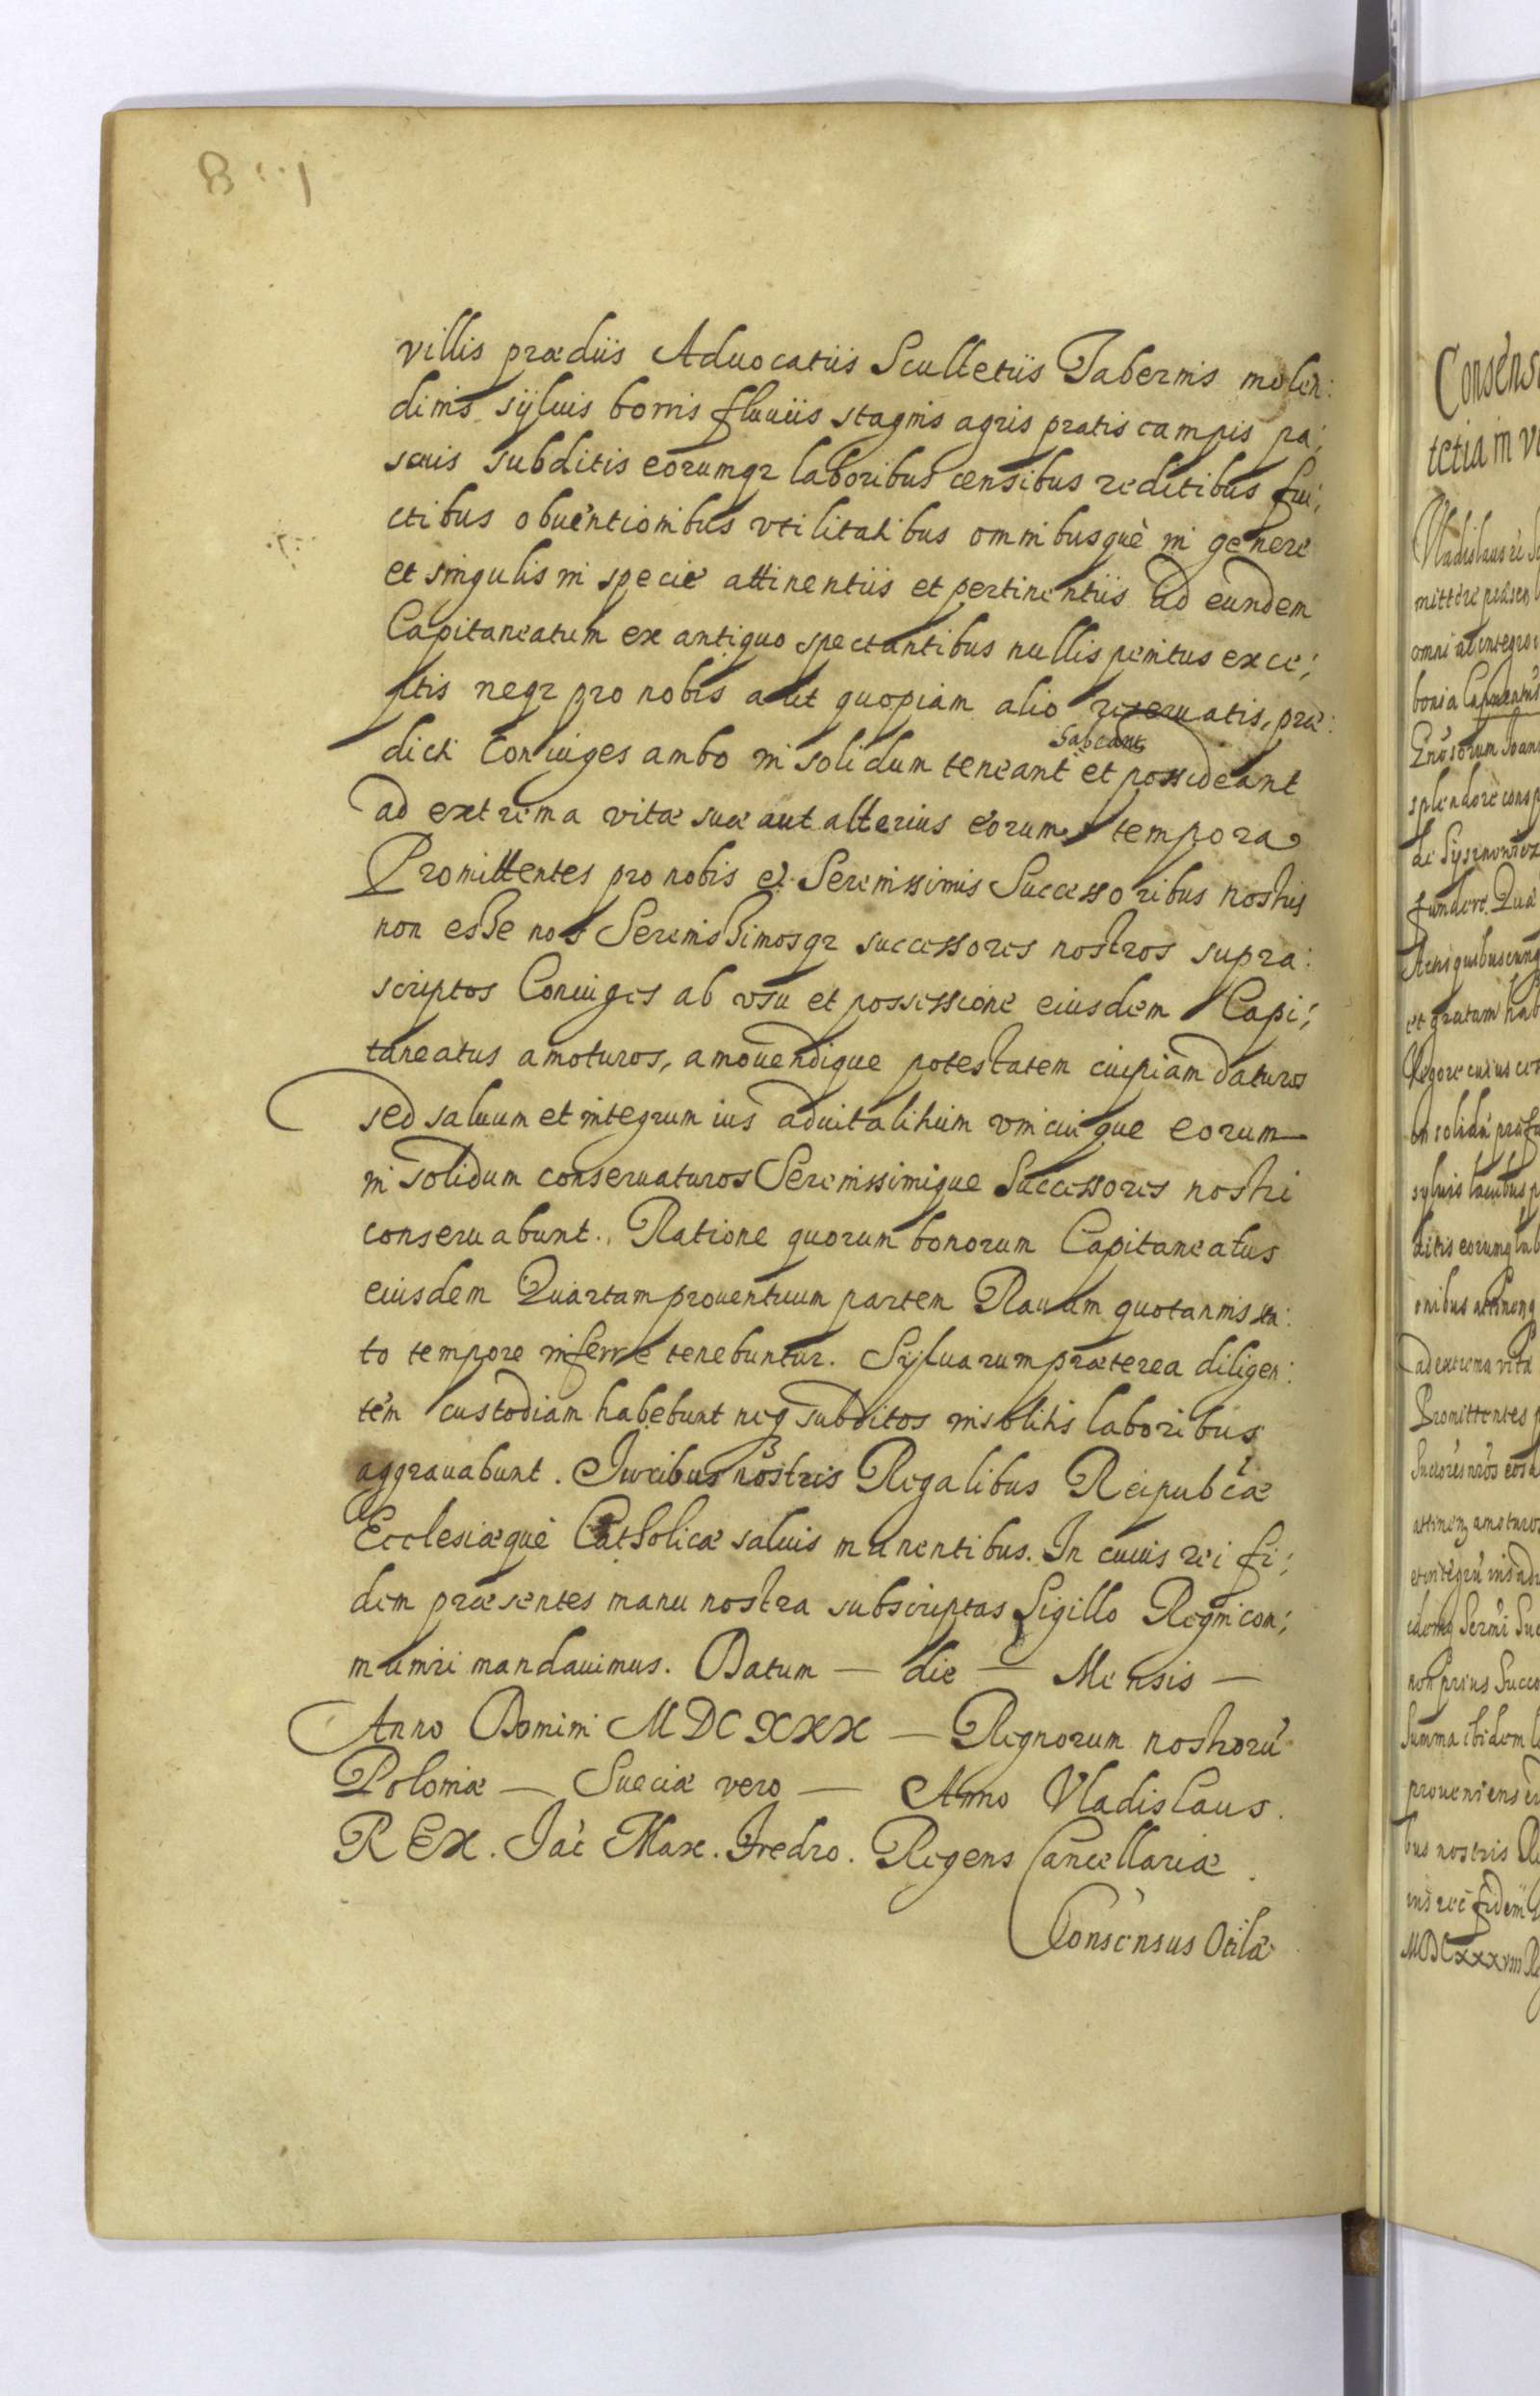 villis prædiis Aduocatiis Scultetiis Tabernis molen:
dinis sÿluis borris fluuiis stagnis agris pratis campis pa:
scuis subditis eorumq₂ laboribus censibus reditibus fru:
ctibus obuentionibus vtilitatibus omnibusque in genere
et singulis in specie attinentiis et pertinentiis ad eundem
Capitaneatum ex antiquo spectantibus nullis penitus exce:
ptis neq₂ pro nobis aut quopiam alio reseruatis, præ:
habeant
dicti Coniuges ambo in solidum teneant et possideant
ad extrema vitæ suæ aut alterius eorum tempora
Promittentes pro nobis et Serenissimis Successoribus nostris
non esse nos Serenissimosq₂ successores nostros supra:
scriptos Coniuges ab vsu et possessione eiusdem Capi:
taneatus amoturos, amouendique potestatem cuipiam daturos
sed saluum et integrum ius aduitalitium vnicuique eorum
in solidum conseruaturos Serenissimique Successores nostri
conseruabunt. Ratione quorum bonorum Capitaneatus
eiusdem Quartam prouentuum partem Rauam quotannis sta:
to tempore inferre tenebuntur. Syluarum præterea diligen:
tem custodiam habebunt neq₃ subditos insolitis laboribus
aggrauabunt. Iuribus nostris Regalibus Reipublcæ
Ecclesiæque Catholicæ saluis manentibus. In cuius rei fi:
dem præsentes manu nostra subscriptas Sigillo Regni com:
muniri mandauimus. Datum — die — Mensis —
Anno Domini MDCXXX — Regnorum nostrorũ
Poloniæ — Sueciæ vero — Anno Vladislaus.
REX. Jac Max. Fredro. Regens Cancellariæ.
Consensus
Consens
tetia in
Vladislaus
mittere
omni
bonia Capneatus
splendore
fundere. Quæ
et gratum hab
In solidũ
ditis eorumq lab
onibus
ad extrema vitæ
Promittentes
attinen amoturos
Serm̃i Suc
non prius Succe
Summa ibidem
proueniens
bus nostris Re
ius rei fidem
MDCxxxviii Re